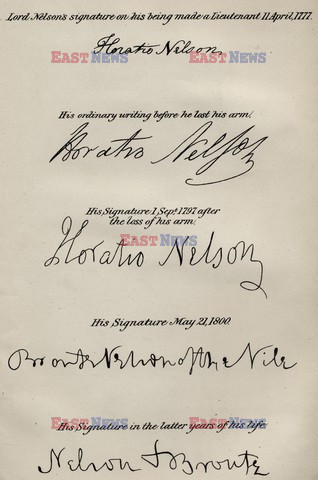 Lord Nelson's signature on his being made a Lieutenant 11 April, 1777.
Horatio Nelson
EAST NEWS
His ordinary writing before he lost his arm.
Horatio Nelson
His Signature 1 Sept. 1797 after
the loss of his arm.
EAST NEWS
Horatio Nelson
His Signature May 21, 1800.
Bronte Nelson of the Nile
EAST NEWS
His Signature in the latter years of his life
Nelson & Bronte